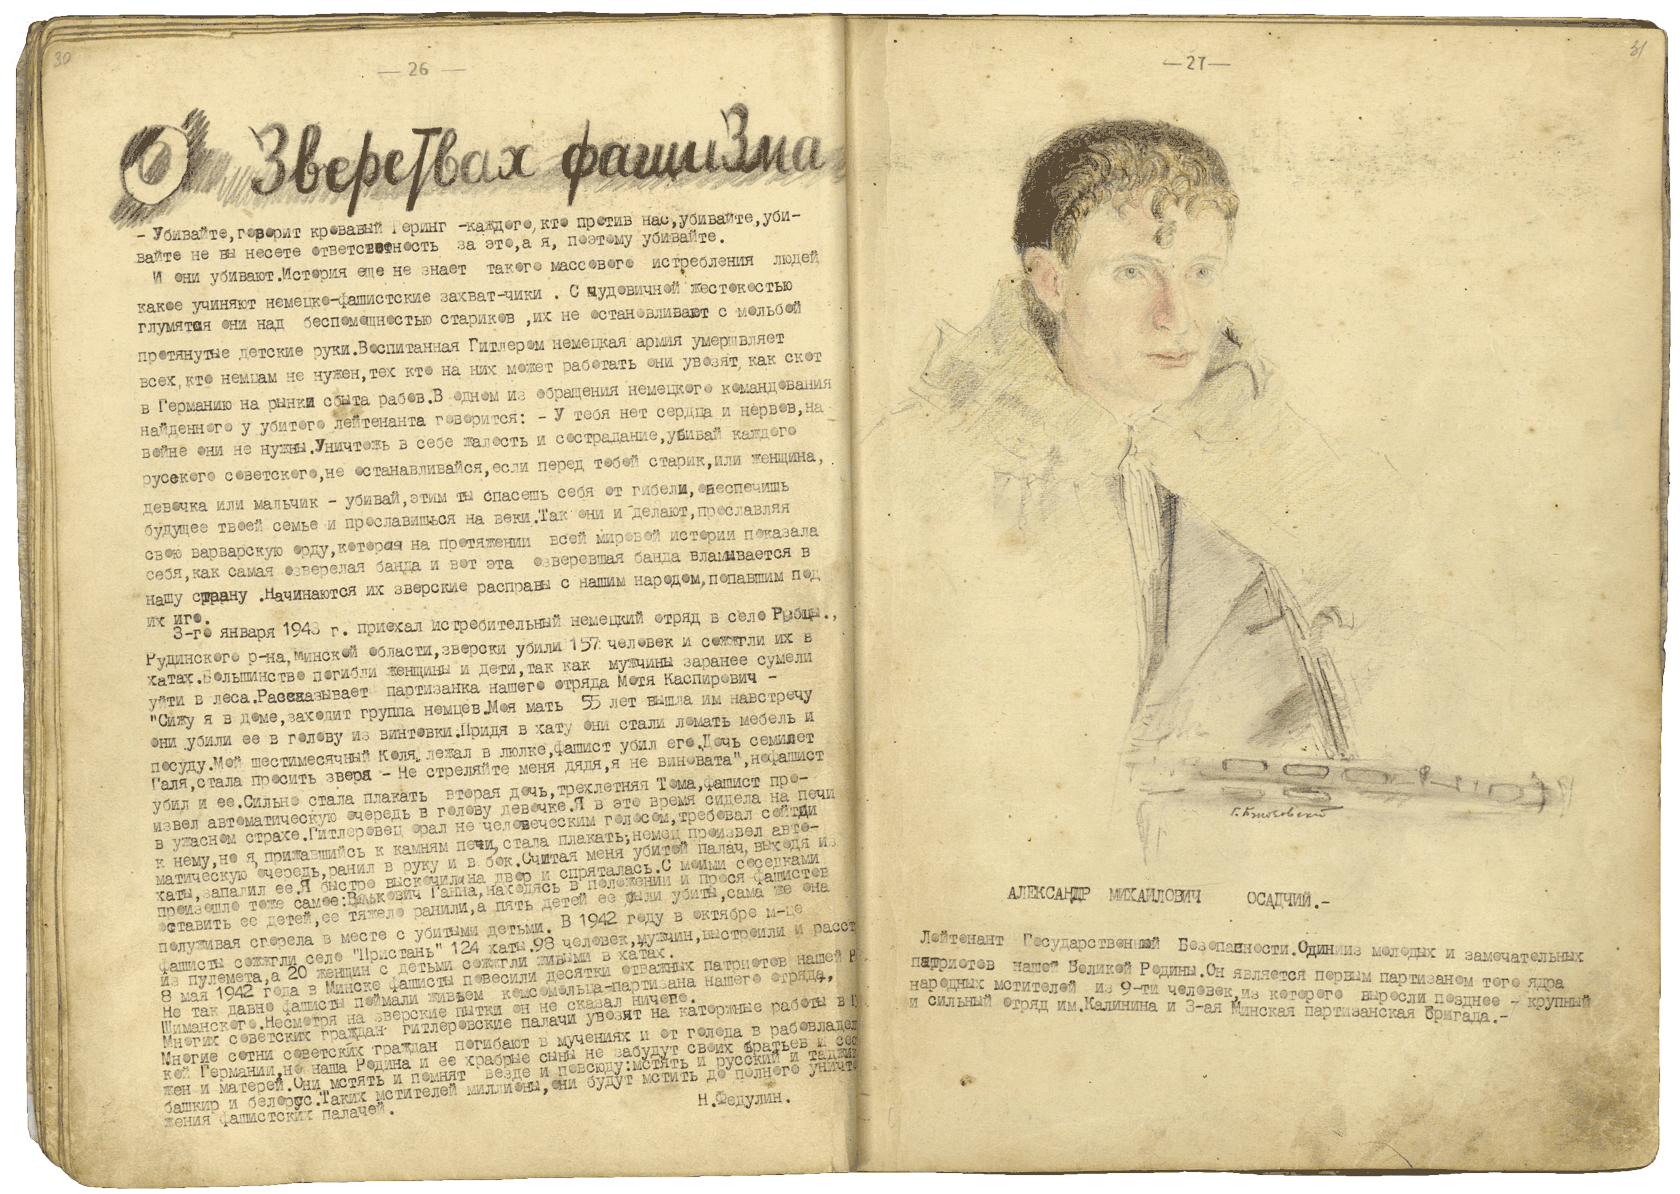 30
— 26 —
О Зверствах фашизма
- Убивайте,говорит кровавый Геринг -каждого,кто против нас,убивайте,уби-
вайте не вы несете ответственность за это,а я, поэтому убивайте.
И они убивают.История еще не знает такого массового истребления людей
какое учиняют немецко-фашистские захват-чики . С чудовичной жестокостью
глумятся они над беспомощностью стариков ,их не останавливают с мольбой
протянутые детские руки.Воспитанная Гитлером немецкая армия умерщвляет
всех,кто немцам не нужен,тех кто на них может работать они увозят,как скот
в Германию на рынки сбыта рабов.В одном из обращения немецкого командования
найденного у убитого лейтенанта говорится: - У тебя нет сердца и нервов,на
войне они не нужны.Уничтожь в себе жалость и сострадание,убивай каждого
русского советского,не останавливайся,если перед тобой старик,или женщина,
девочка или мальчик - убивай,этим ты спасешь себя от гибели,обеспечишь
будущее твоей семье и прославишься на веки.Так они и делают,прославляя
свою варварскую орду,которая на протяжении всей мировой истории показала
себя,как самая озверелая банда и вот эта озверевшая банда вламывается в
нашу страну .Начинаются их зверские расправы с нашим народом,попавшим под
их иго.
3-го января 1943 г. приехал истребительный немецкий отряд в село Рабцы.,
Рудинского р-на,Минской области,зверски убили 157 человек и сожжгли их в
хатах.Большинство погибли женщины и дети,так как мужчины заранее сумели
уйти в леса.Рассказывает партизанка нашего отряда Мотя Каспирович -
"Сижу я в доме,заходит группа немцев.Моя мать 55 лет вышла им навстречу
они убили ее в голову из винтовки.Придя в хату они стали ломать мебель и
посуду.Мой шестимесячный Коля лежал в люлке,фашист убил его.Дочь семилет
Галя,стала просить зверя - Не стреляйте меня дядя,я не виновата",нофашист
убил и ее.Сильно стала плакать вторая дочь,трехлетняя Тома,фашист про-
извел автоматическую очередь в голову девочке.Я в это время сидела на печи
в ужасном страхе.Гитлеровец орал не человеческим голосом,требовал сойти
к нему,но я прижавшийсь к камням печи,стала плакать;немец произвел авто-
матическую очередь,ранил в руку и в бок.Считая меня убитой палач,выходя из
хаты,запалил ее.Я быстро выскочила на двор и спряталась.С моими соседками
произошло тоже самое:Валькович Ганна,находясь в положении и прося фашистов
оставить ее детей,ее тяжело ранили,а пять детей ее были убиты,сама же она
полуживая сгорела в месте с убитыми детьми. В 1942 году в октябре м-це
фашисты сожжгли село "Пристань" 124 хаты.98 человек,мужчин,выстроили и расст
из пулемета,а 20 женщин с детьми сожжгли живыми в хатах.
8 мая 1942 года в Минске фашисты повесили десятки отважных патриотов нашей Р
Не так давно фашисты поймали живьем комсомольца-партизана нашего отряда,
Шиманского.Несмотря на зверские пытки он не сказал ничего.
Многих советских граждан гитлеровские палачи увозят на каторжные работы в
Многие сотни советских граждан погибают в мучениях и от голода в рабовладел
кой Германии,но наша Родина и ее храбрые сыны не забудут своих братьев и сес
жен и матерей.Они мстять и помнят везде и повсюду:мстять и русский и таджик
башкир и белорус.Таких мстителей миллионы,они будут мстить до полного уничто
жения фашистских палачей.
Н.Федулин.
31
—27—
АЛЕКСАНДР МИХАИЛОВИЧ ОСАДЧИЙ.-
Лейтенант Государственной Безопасности.Одиниз молодых и замечательных
патриотов нашей Великой Родины.Он является первым партизаном того ядра
народных мстителей из 9-ти человек,из которого выросли позднее - крупный
и сильный отряд им.Калинина и 3-ая Минская партизанская бригада.-